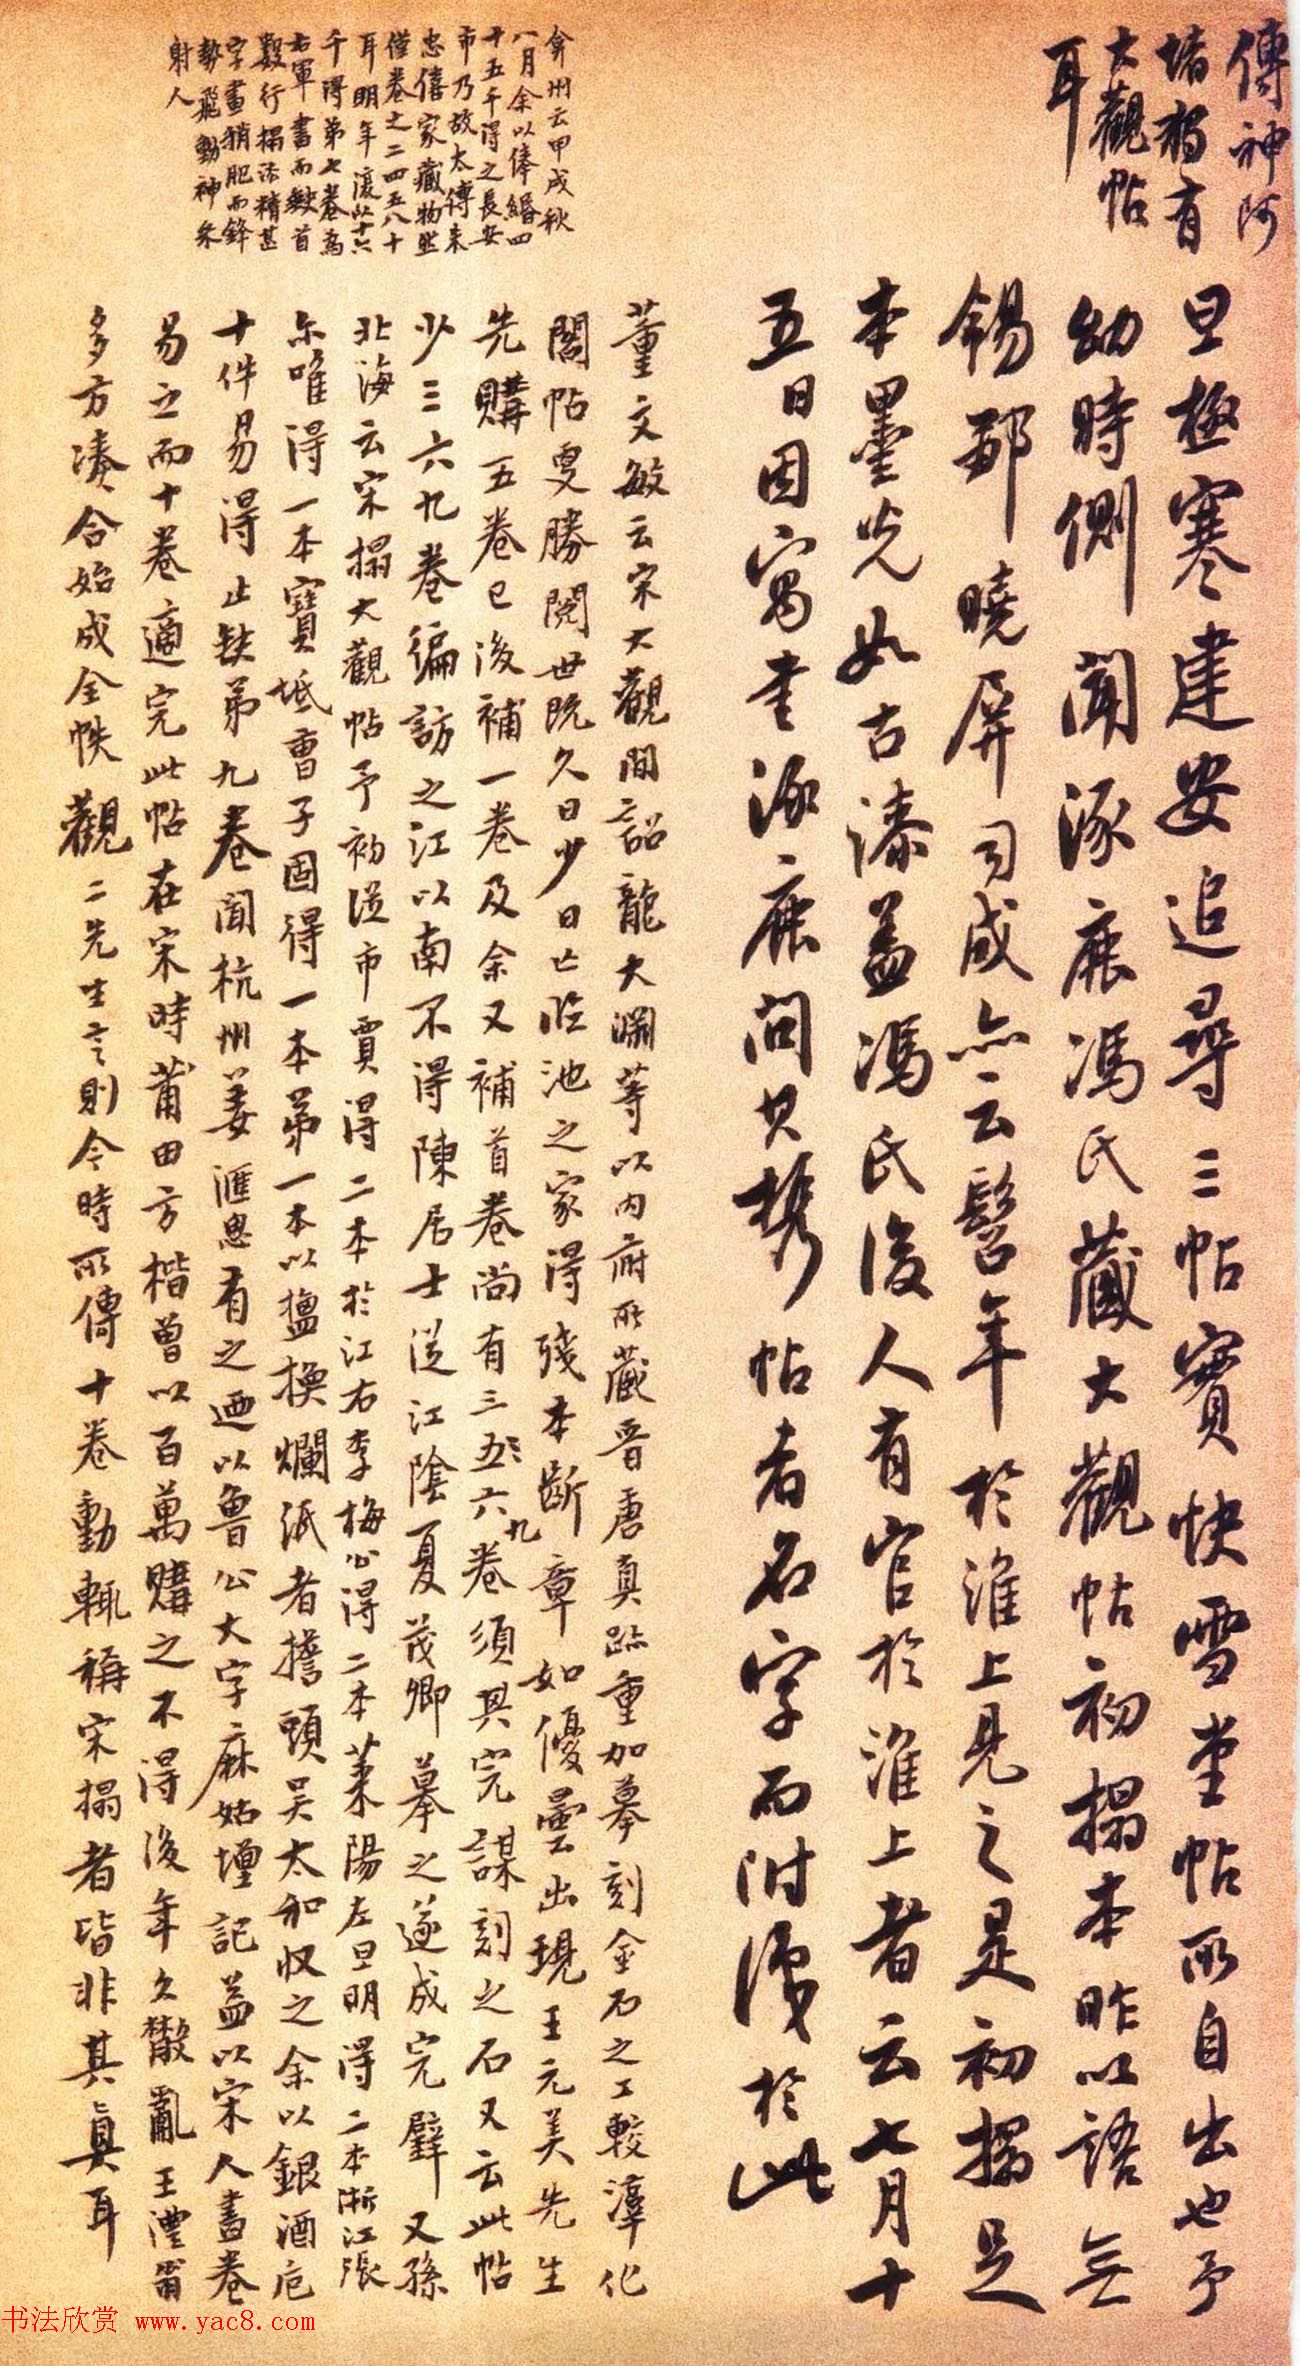 傳神阿
堵獨有
大觀帖
耳
旦極寒建安追尋三帖實快雪堂帖所自出也予
幼時側聞涿鹿馮氏藏大觀帖初搨本昨以語無
錫鄒曉屏司成亦云髫年於淮上見之是初搨足
本墨光如古漆蓋馮氏後人有官於淮上者云七月十
五日因寓書涿鹿問其攜帖者名字而附識於此
弇州云甲戌秋
八月余以俸緡四
十五千得之長安
市乃故太傅朱
忠僖家藏物然
僅卷之二四五八十
耳明年復以十六
千得第七卷為
右軍書而缺首
數行搨法精甚
字畫稍肥而鋒
勢飛動神采
射人
董文敏云宋大觀間詔龍大淵等以内府所藏晉唐真跡重加摹刻金石之工較淳化
閣帖更勝閱世既久日少日亡臨池之家得殘本斷章如優曇出現王元美先生
先購五卷已後補一卷及余又補首卷尚有三五六九卷須其完謀刻之石又云此帖
少三六九卷徧訪之江以南不得陳居士從江陰夏茂卿摹之遂成完璧又孫
北海云宋搨大觀帖予初從市賈得二本於江右李梅公得二本萊陽左旦明得二本浙江張
尔唯得一本寶坻曹子固得一本第一本以搵換爛汦者擣頭吴太和收之余以銀酒卮
十件易得止缺第九卷聞杭州姜滙思有之廼以魯公大字麻姑壇記蓋以宋人畫卷
易之而十卷適完此帖在宋時莆田方楷曾以百萬購之不得後年久散亂王澧甫
多方湊合始成全帙觀二先生言則今時所傳十卷動輒稱宋搨者皆非其真耳
书法欣赏 www.yac8.com